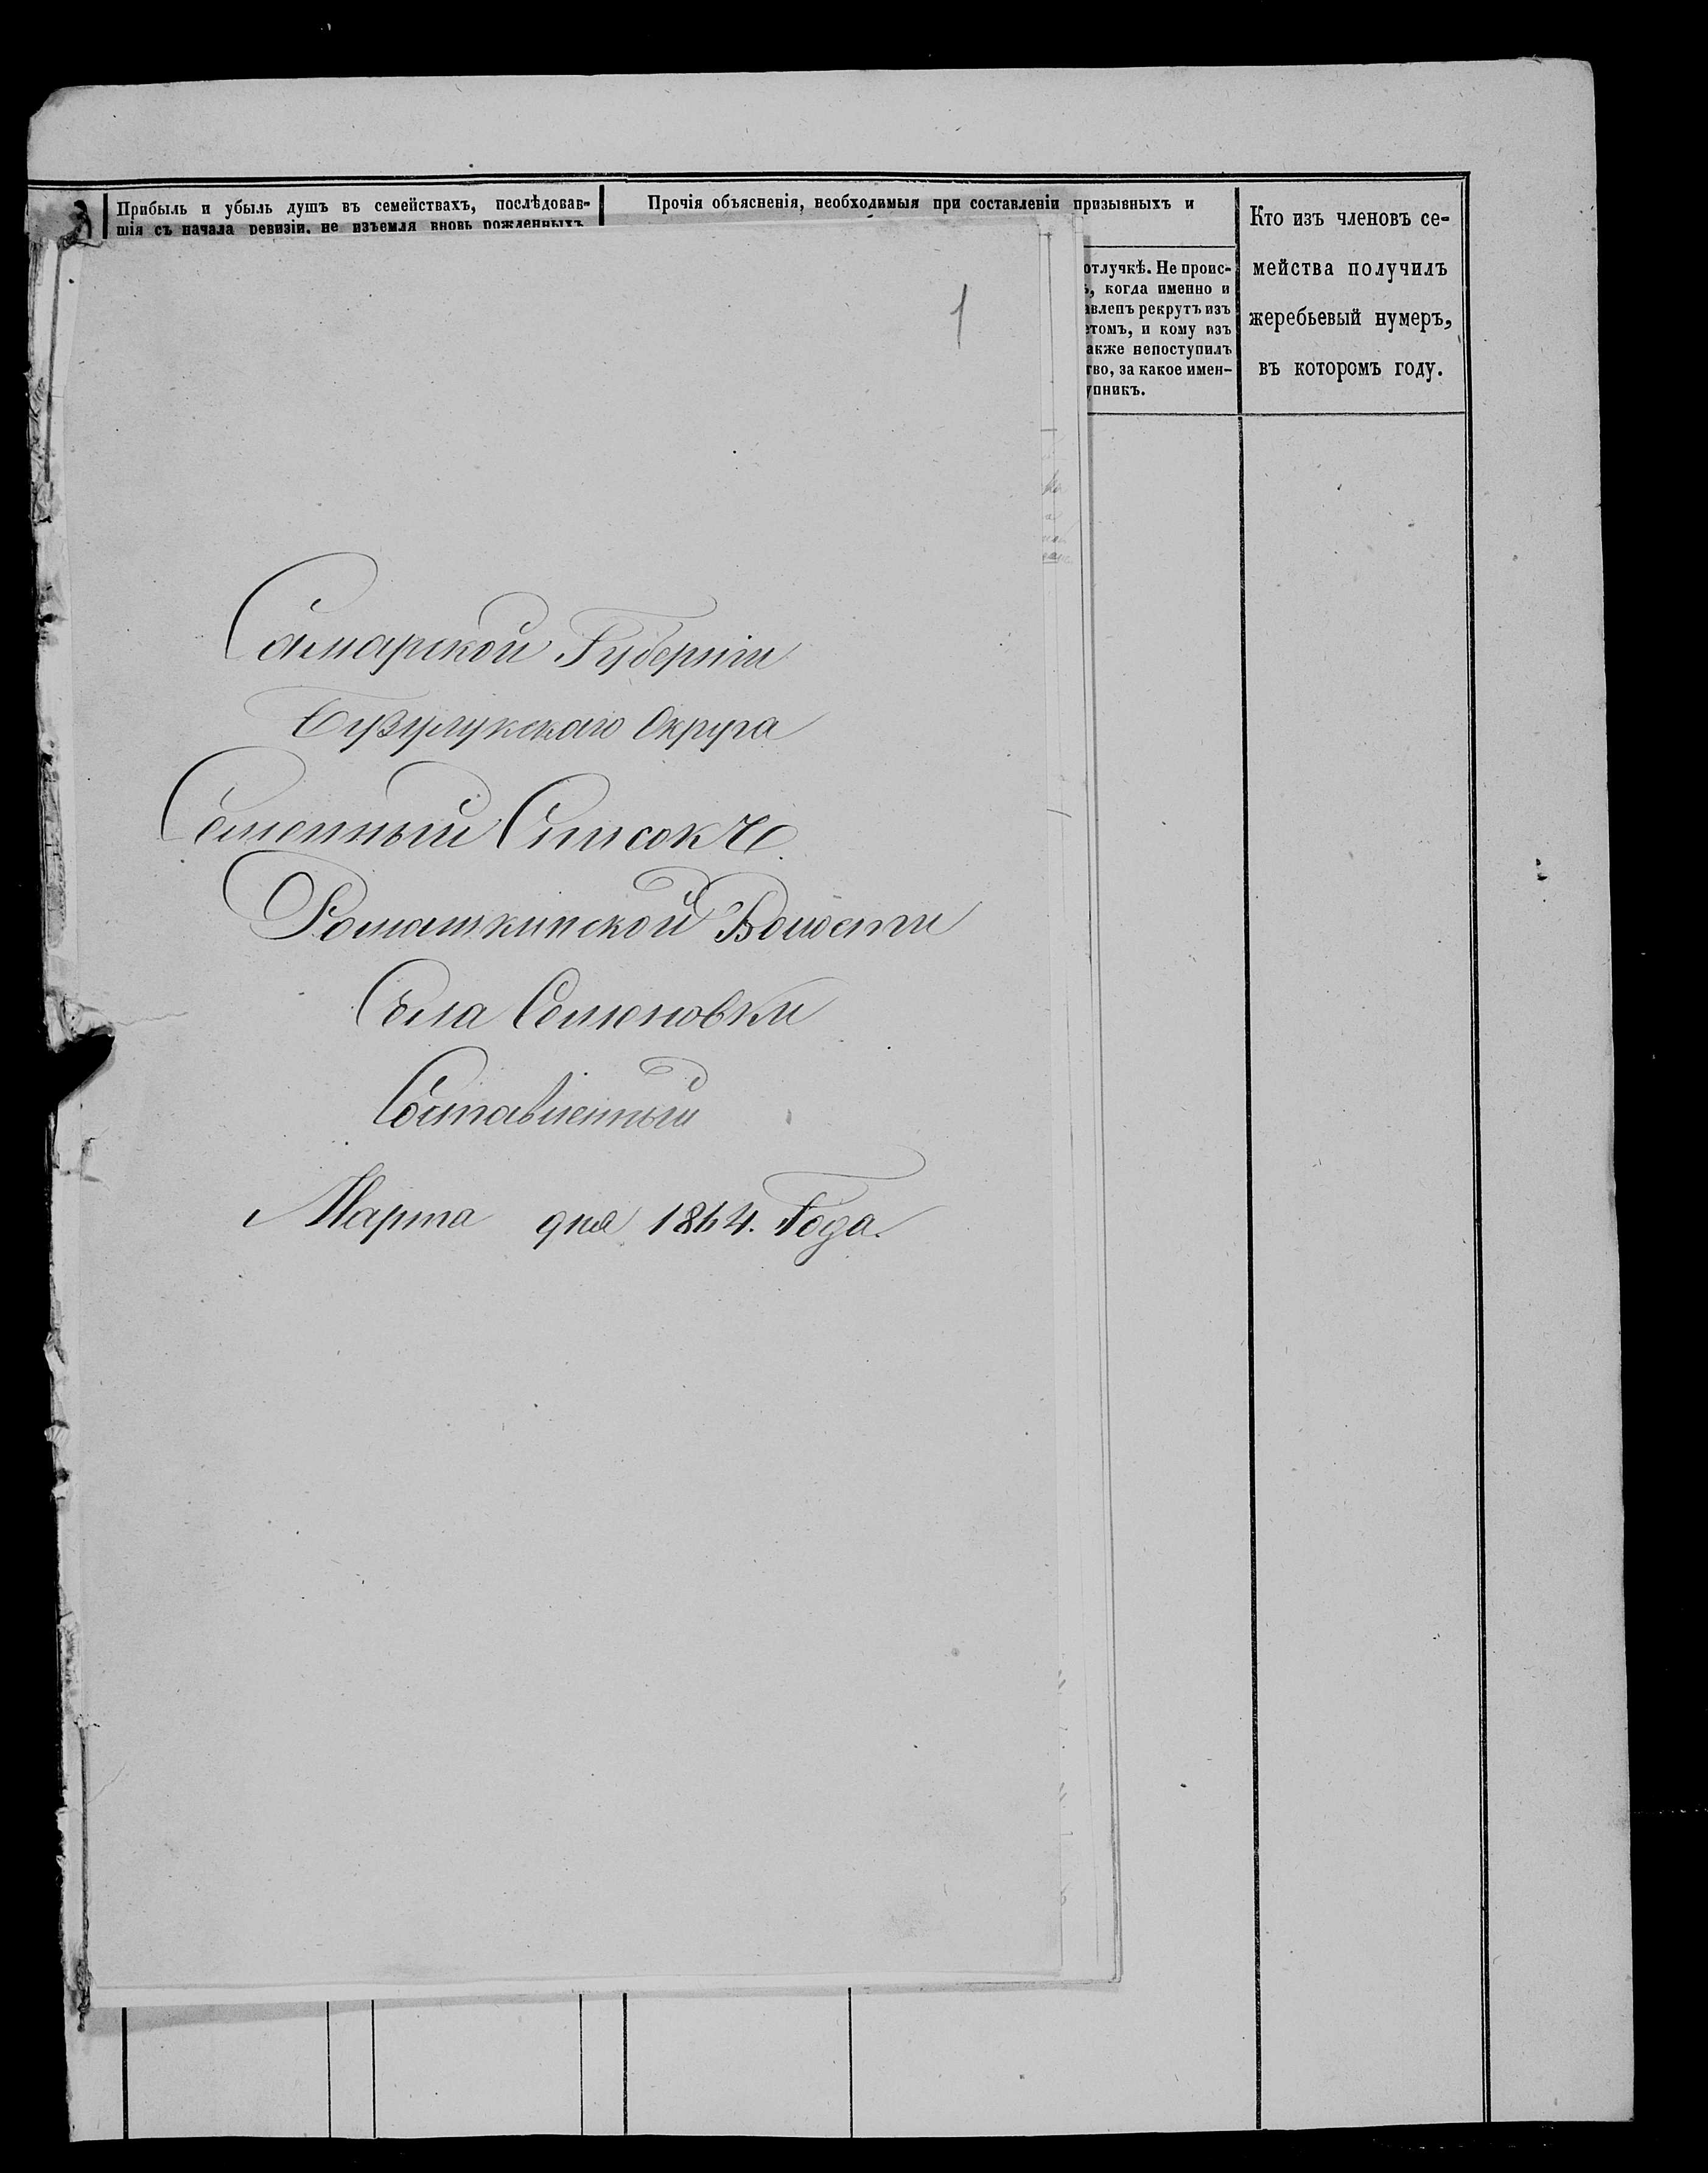 Прибыль и убыль душъ въ семействахъ, послѣдовав-
шія съ начала ревизіи, не изъемля вновь рожденныхъ
Прочія объясненія, необходимыя при составленіи призывныхъ и
отлучкѣ. Не проис-
ъ, когда именно и
авленъ рекрутъ изъ
етомъ, и кому изъ
акже непоступилъ
тво, за какое имен-
упникъ.
Кто изъ членовъ се-
мейства получилъ
жеребьевый нумеръ,
въ которомъ году.
1
Самарской Губерніи
Бузулукскаго Округа
Семейный Списокъ
Ромашкинской Волости
Села Семеновки
Составленный
Марта дня 1864. Года.